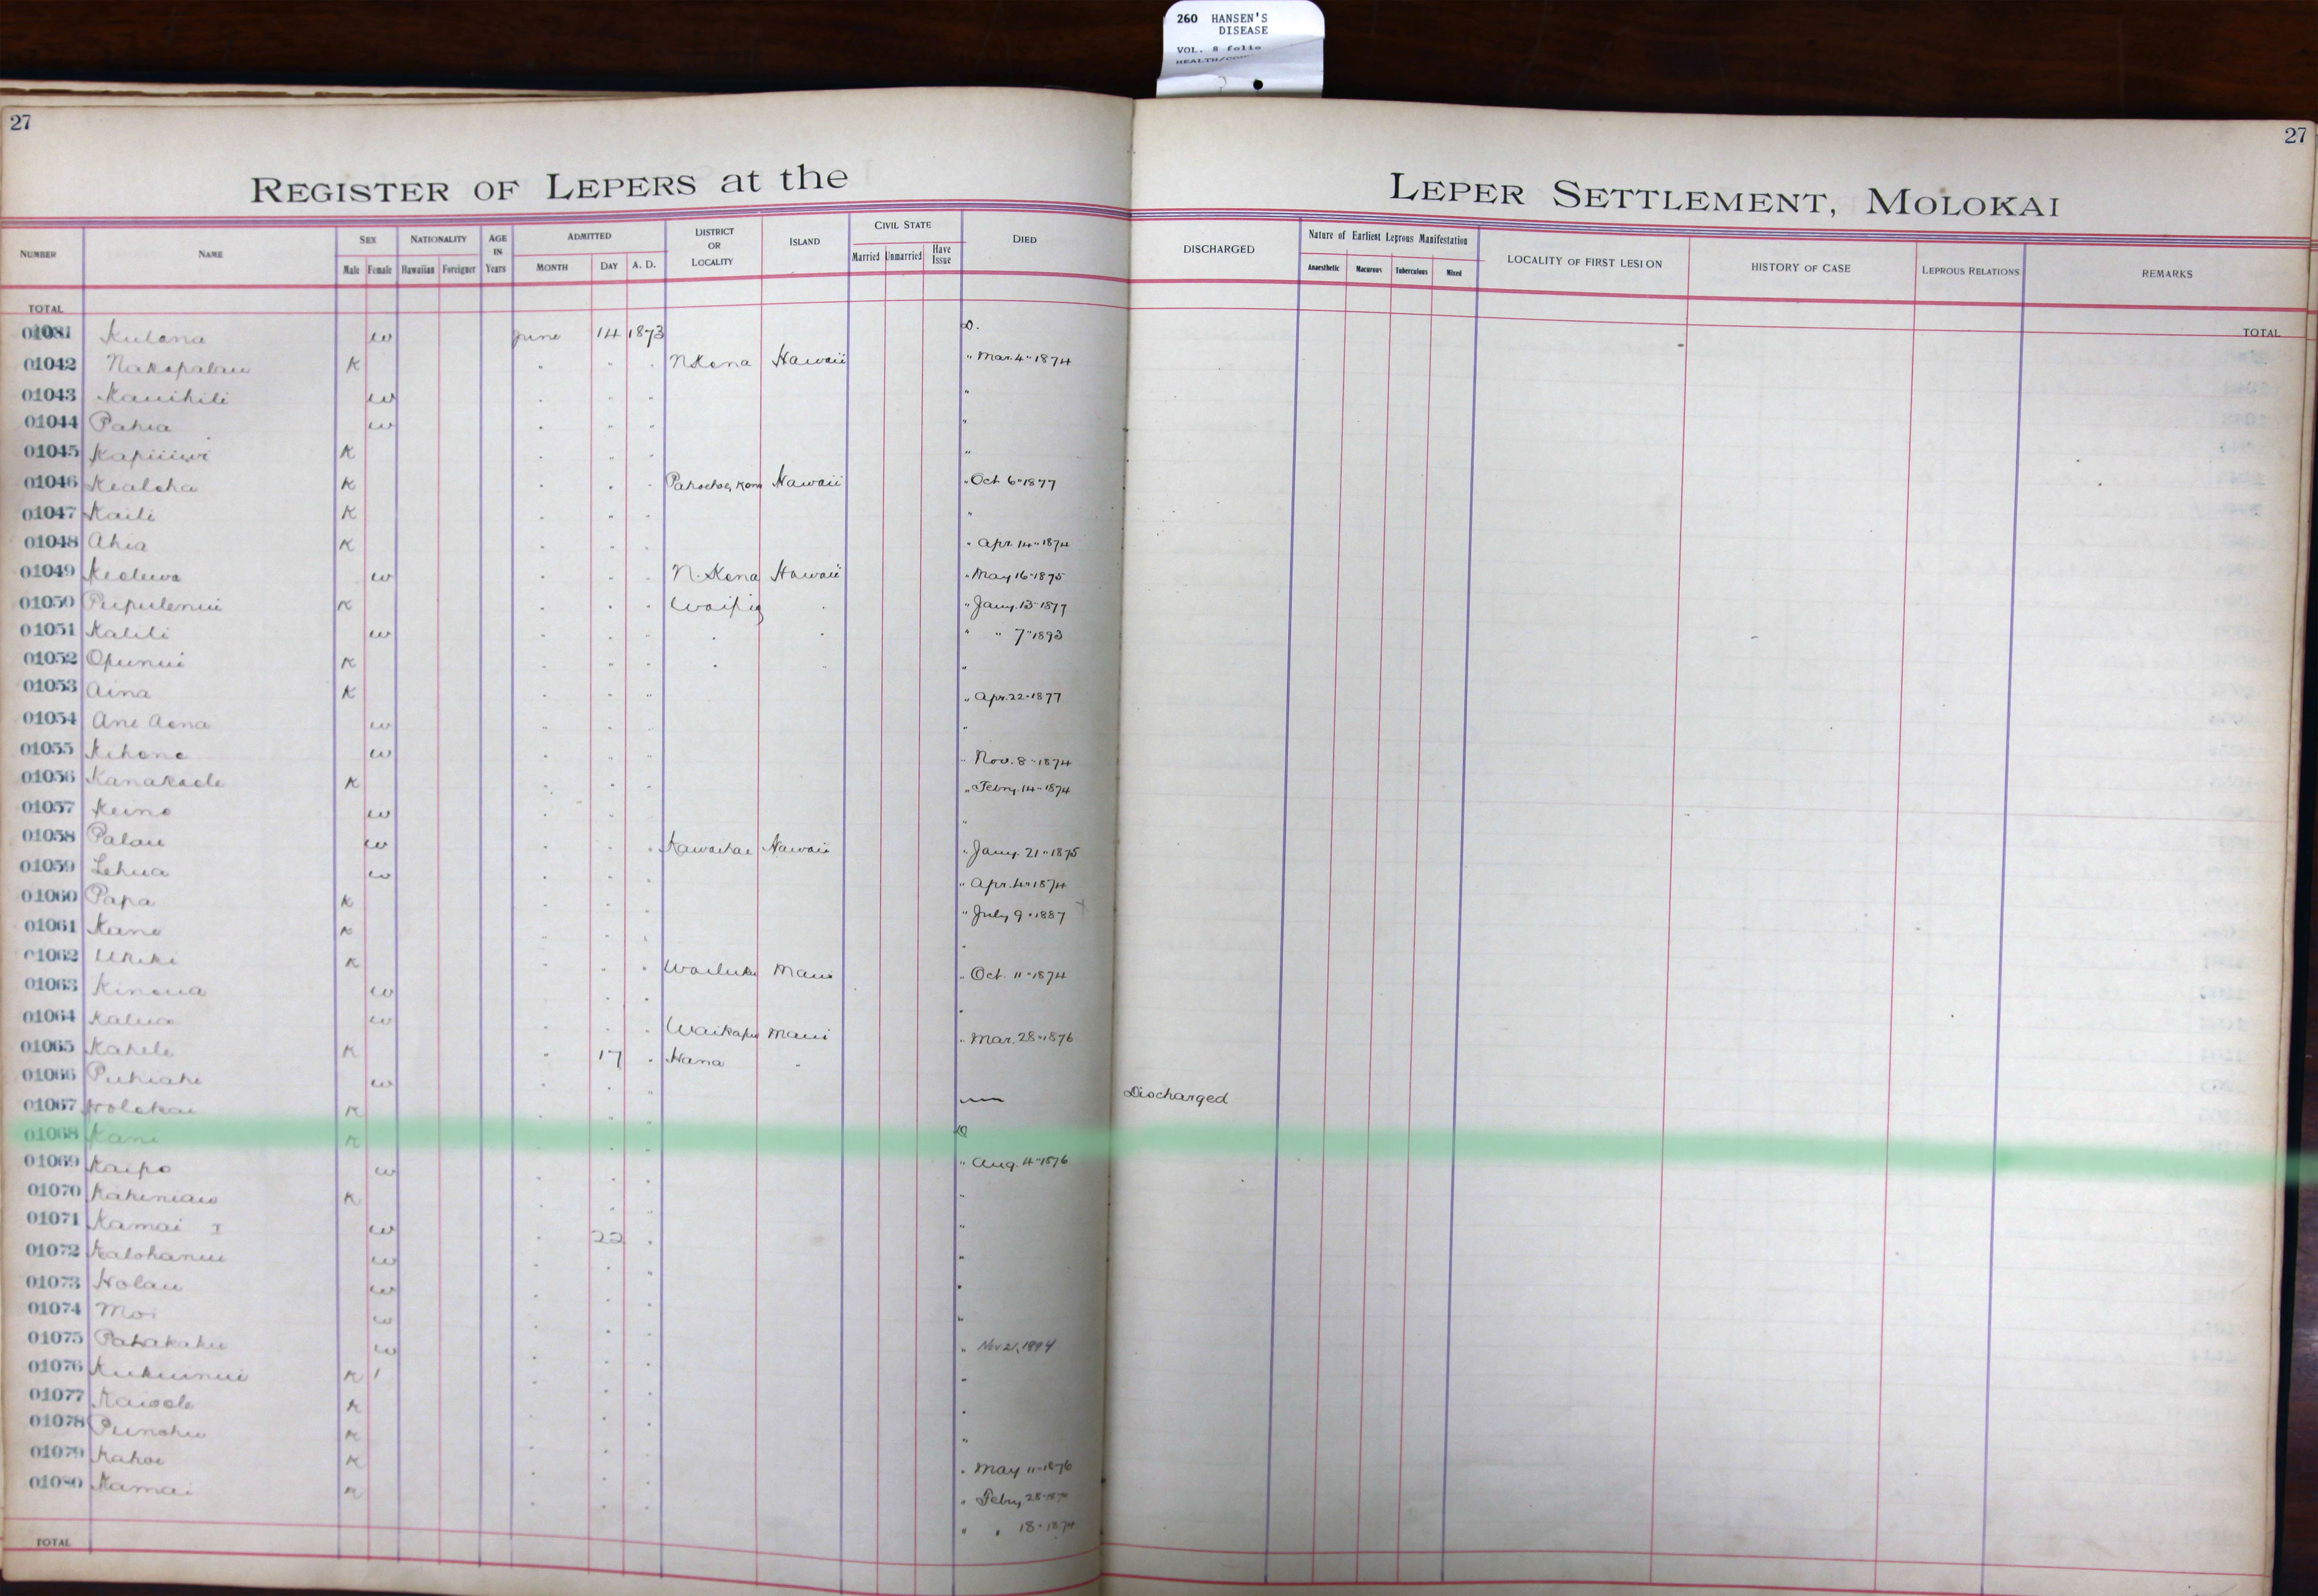 260 HANSEN'S
DISEASE
VOL. 8 folio
27
27
REGISTER OF LEPERS at the LEPER SETTLEMENT, MOLOKAI
NUMBER NAME SEX Male Female NATIONALITY Hawaiian Foreigner AGE IN Years ADMITTED MONTH DAY A. D. DISTRICT OR LOCALITY ISLAND CIVIL STATE Married Unmarried Have Issue DIED DISCHARGED Nature of Earliest Leprous Manifestation Anaesthetic Macurous Tuberculous Mixed LOCALITY OF FIRST LESION HISTORY OF CASE LEPROUS RELATIONS REMARKS
TOTAL TOTAL
Kulana w June 14 1873 D.
01042 Nakopalau K " " " N Kona Hawaii " Mar. 4" 1874
01043 Kauihili w " " " "
01044 Pahia w " " " "
01045 K " " " "
01046 Kealoha K " " " Hawaii " Oct 6" 1877
01047 Kaili K " " " "
01048 Ahia K " " " " Apr. 14" 1874
01049 w " " " N. Kona Hawaii " May 16" 1875
01050 Pupulenui K " " " Waipio " " Jany. 13" 1877
01051 Kalili w " " " " " " " 7" 1893
01052 Opunui K " " " " " "
01053 Aina K " " " " Apr. 22" 1877
01054 Ane Aona w " " " "
01055 Kihene w " " " " Nov. 8" 1874
01056 Kanakaole K " " " " Febry. 14" 1874
01057 Keino w " " " "
01058 Palau w " " " Kawaihae Hawaii " Jany. 21" 1875
01059 Lehua w " " " " Apr. 4" 1874
01060 Papa K " " " " July 9" 1887
01061 Kane K " " " "
01062 Ukeke K " " " Wailuku Maui " Oct. 11" 1874
01063 Kinoua w " " " "
01064 Kalua w " " " Waikapu Maui " Mar. 28" 1876
01065 Kahele K " 17 " Hana "
01066 Puhiahi w " " " — Discharged
01067 Holokai K " " " D
01068 Kani K " " " " Aug. 4" 1876
01069 Kaipo w " " " "
01070 Kaheniau K " " " "
01071 Kamai I w " 22 " "
01072 Kalohanui w " " " "
01073 Holau w " " " "
01074 Moi w " " " " Nov 21, 1894
01075 Pahakahu w " " " "
01076 Kukuinui K " " " "
01077 Kaiaole K " " " "
01078 Punohu K " " " " May 11" 1876
01079 Kahoe K " " " " Febry 28"
01080 Kamai K " " " " " 18" 1874
TOTAL